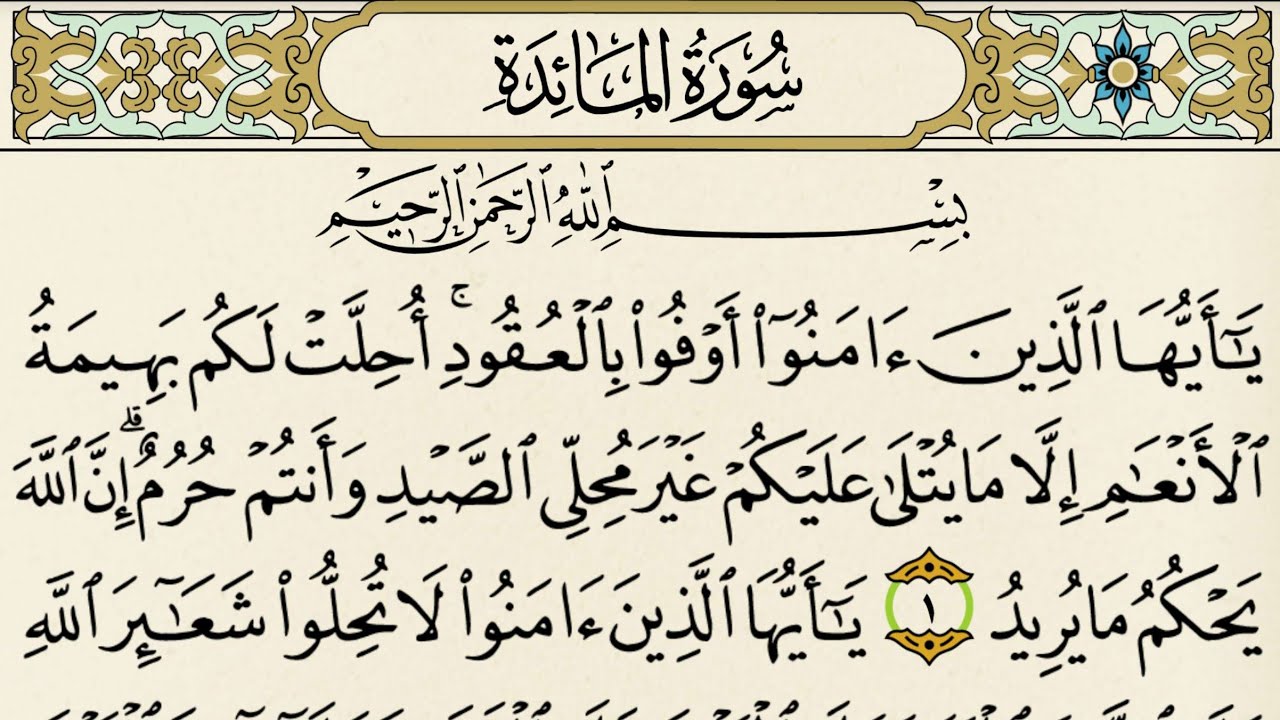 سُورَةُ المَائِدَةِ
بِسْمِ ٱللَّهِ ٱلرَّحْمَٰنِ ٱلرَّحِيمِ
يَٰٓأَيُّهَا ٱلَّذِينَ ءَامَنُوٓا۟ أَوْفُوا۟ بِٱلْعُقُودِ ۚ أُحِلَّتْ لَكُم بَهِيمَةُ
ٱلْأَنْعَٰمِ إِلَّا مَا يُتْلَىٰ عَلَيْكُمْ غَيْرَ مُحِلِّى ٱلصَّيْدِ وَأَنتُمْ حُرُمٌ ۗ إِنَّ ٱللَّهَ
يَحْكُمُ مَا يُرِيدُ ١ يَٰٓأَيُّهَا ٱلَّذِينَ ءَامَنُوا۟ لَا تُحِلُّوا۟ شَعَٰٓئِرَ ٱللَّهِ